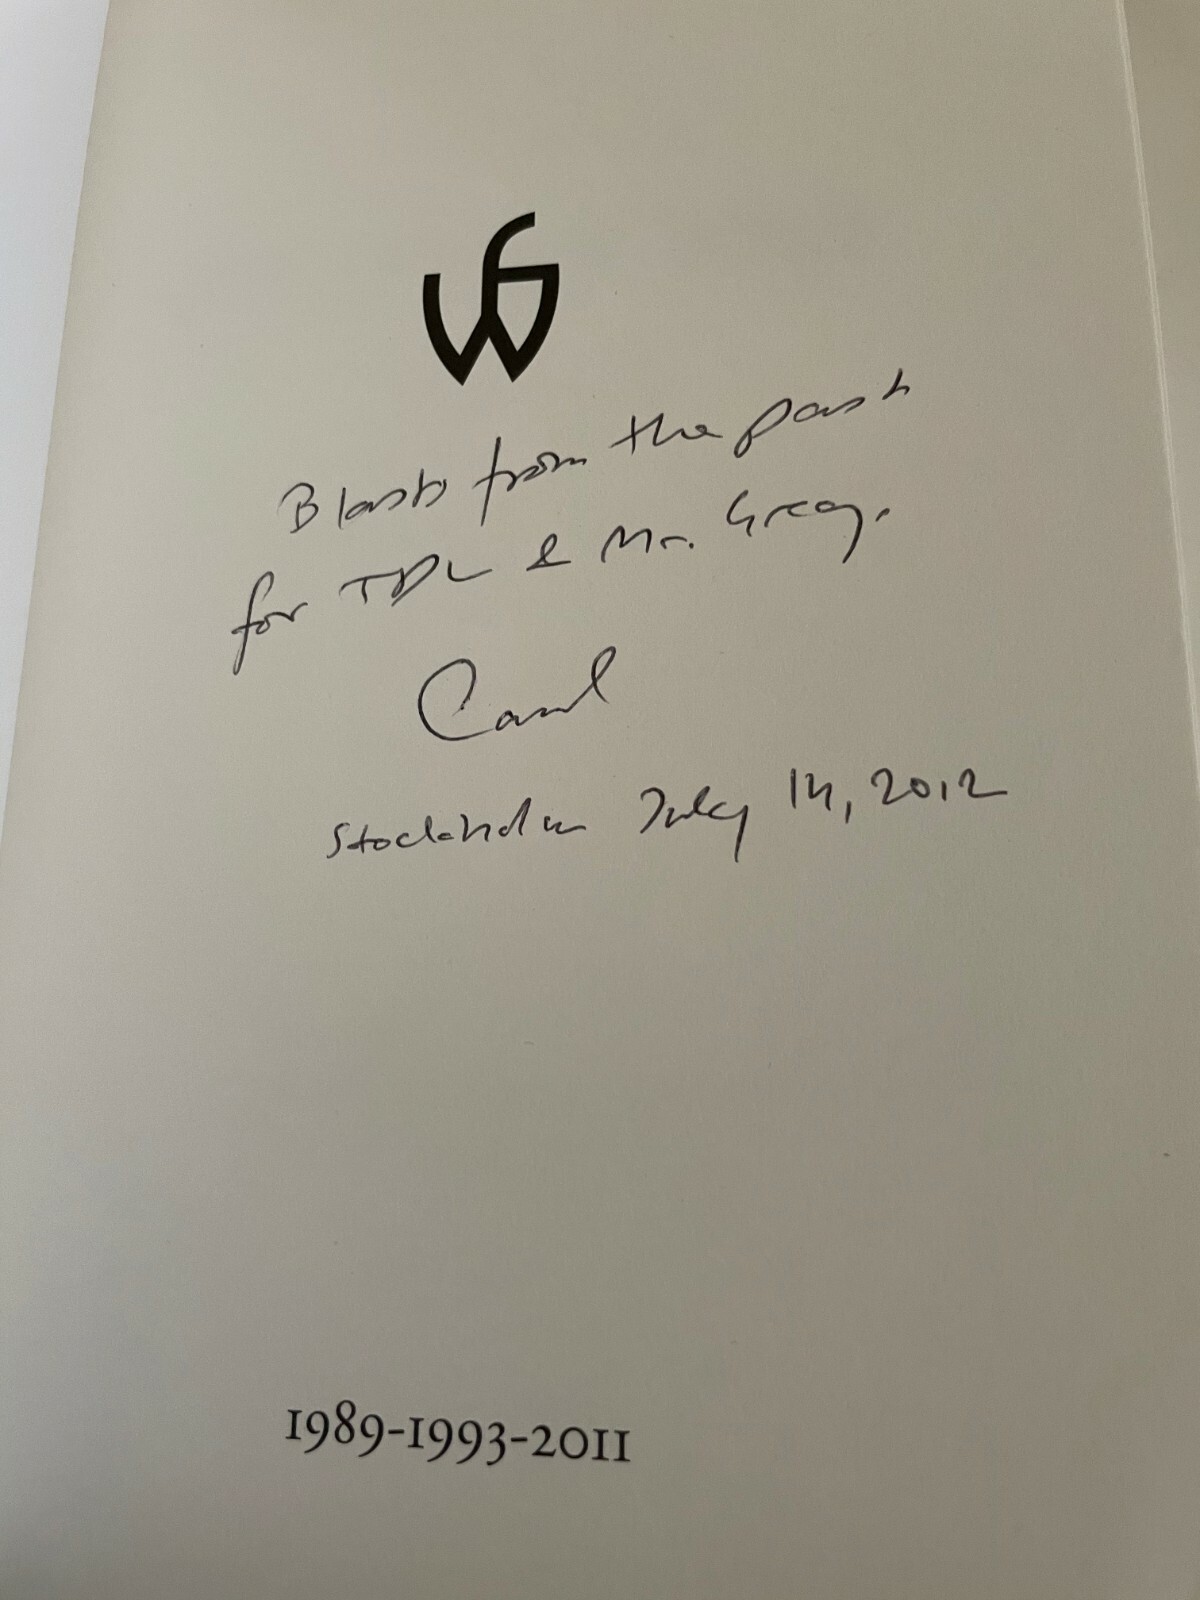 Blasts from the past
for TDL & Mr. Greg.
Carol
Stockholm July 14, 2012
1989-1993-2011